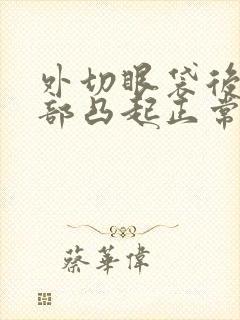 外切眼袋後
部凸起正常
蔡華偉